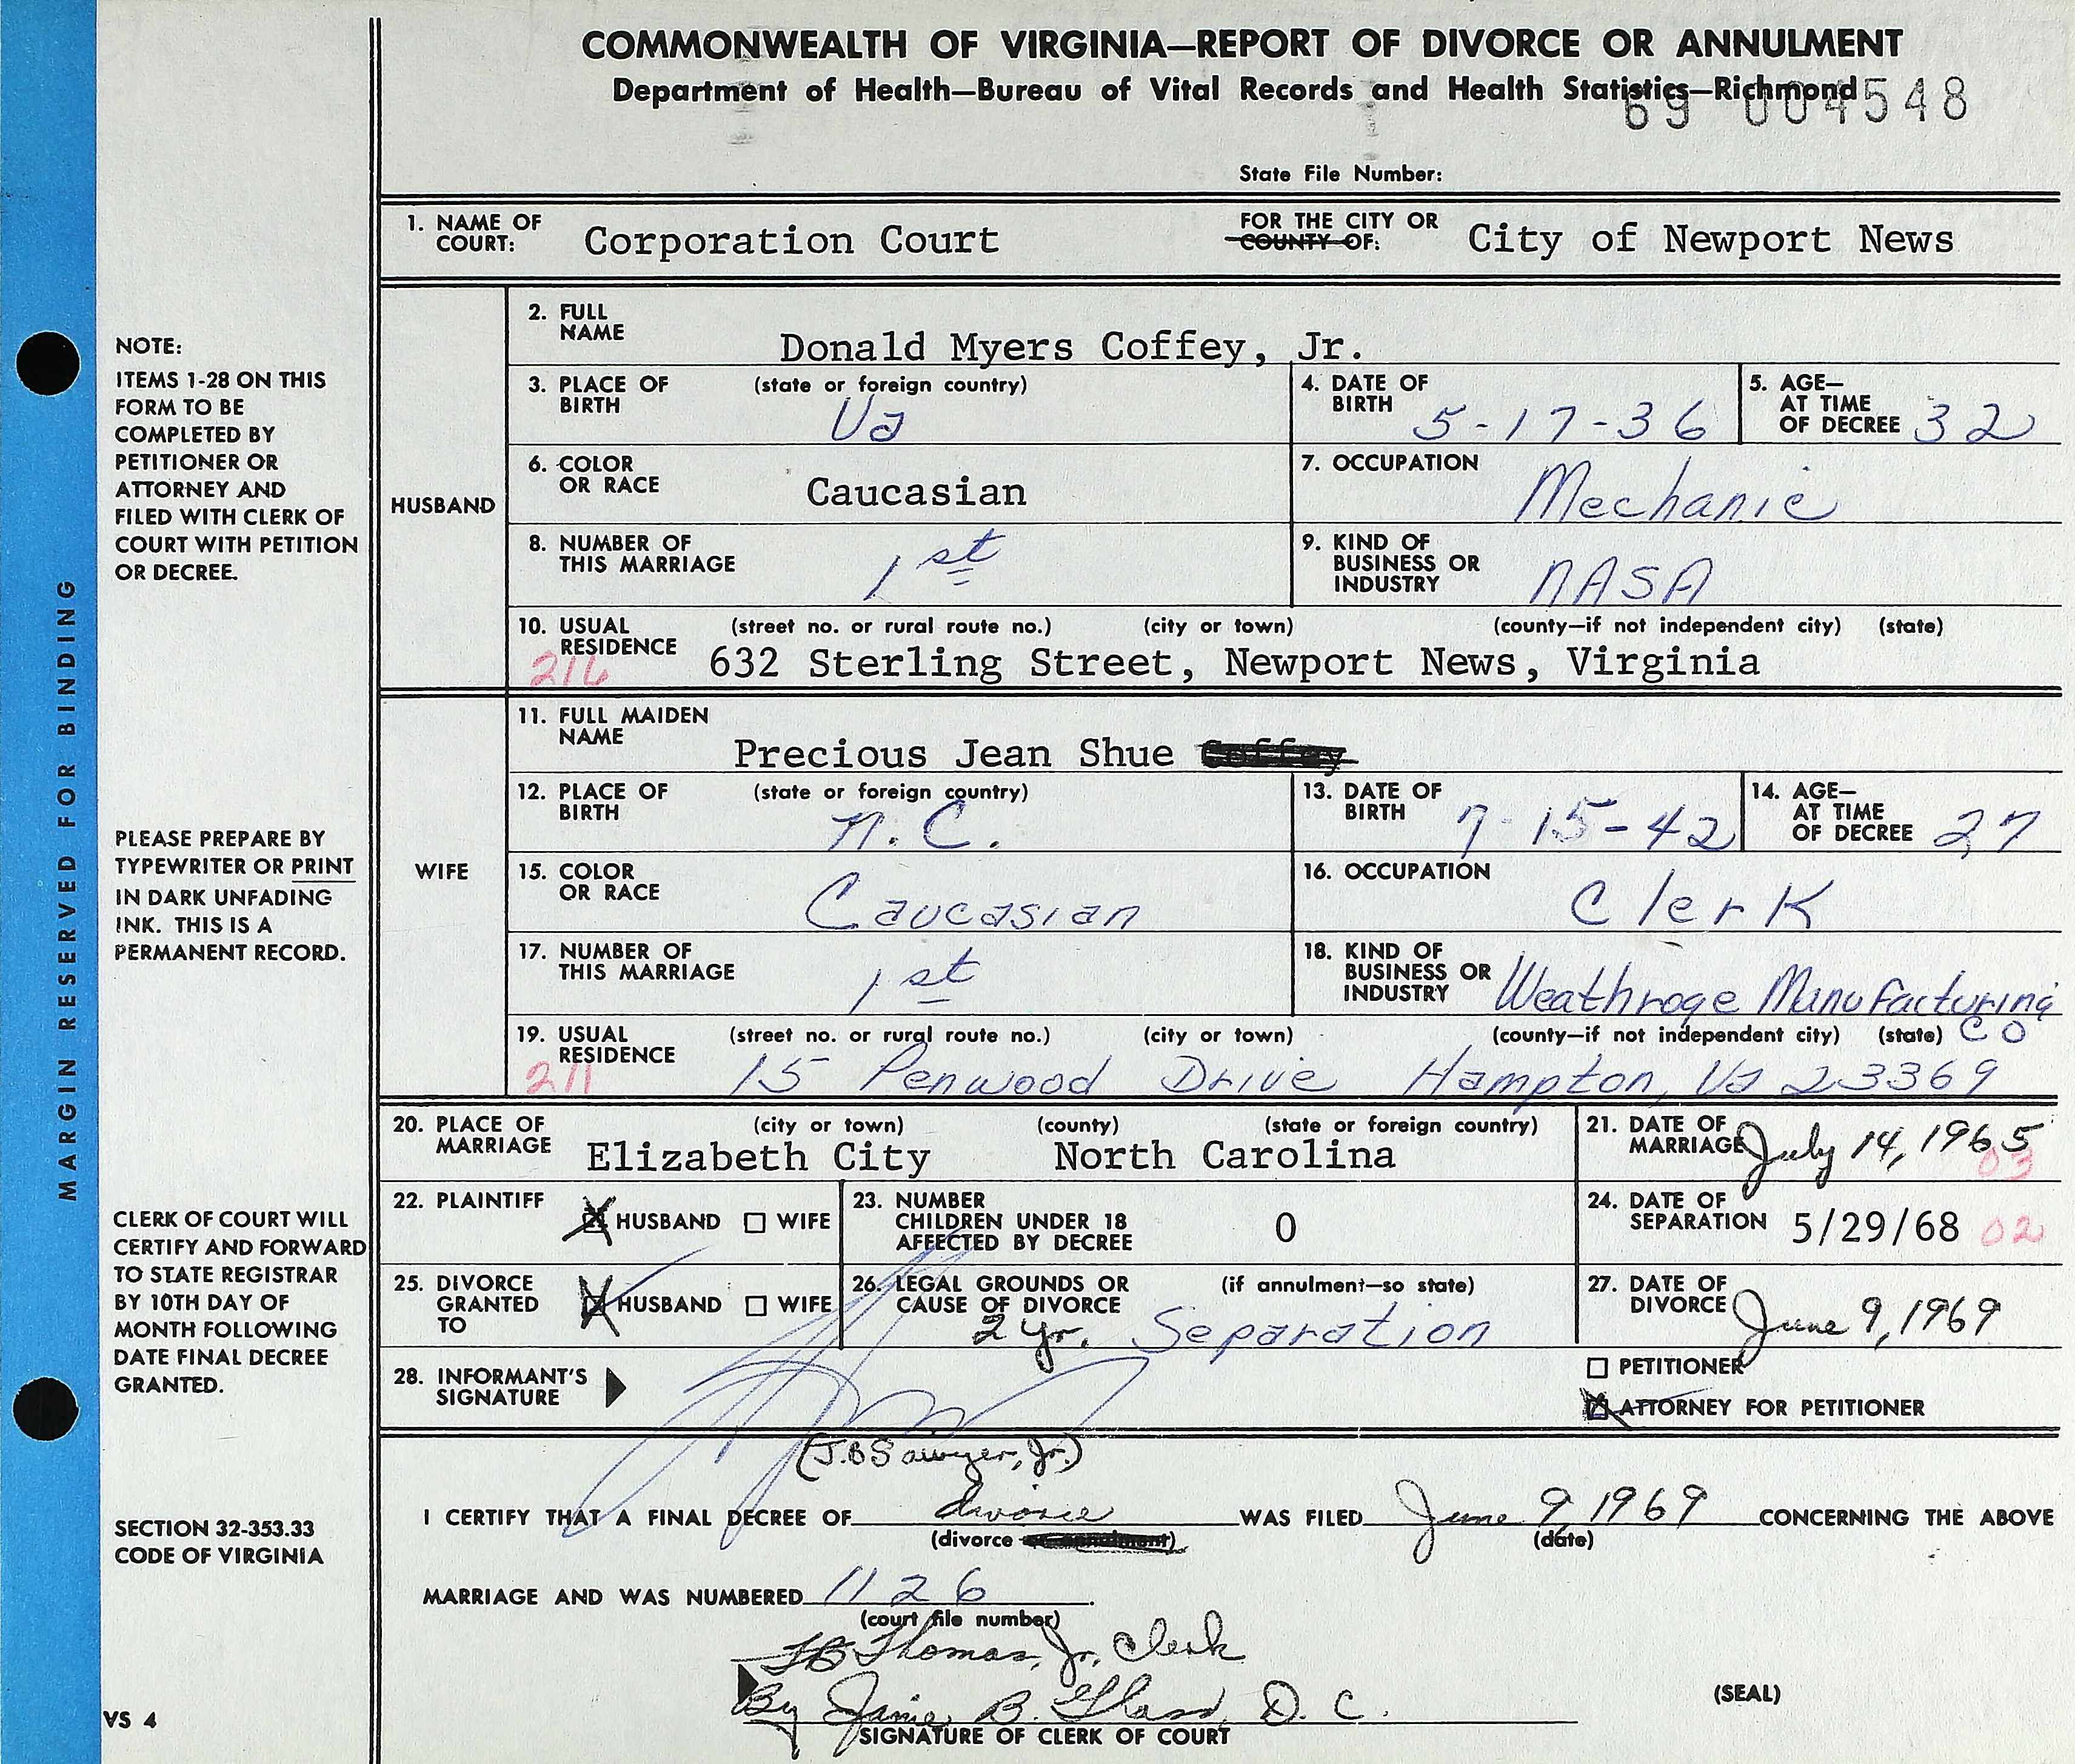 COMMONWEALTH OF VIRGINIA—REPORT OF DIVORCE OR ANNULMENT
Department of Health—Bureau of Vital Records and Health Statistics—Richmond
69 004548
State File Number:
1. NAME OF COURT: Corporation Court FOR THE CITY OR COUNTY OF: City of Newport News
HUSBAND
2. FULL NAME Donald Myers Coffey, Jr.
3. PLACE OF BIRTH (state or foreign country) Va
4. DATE OF BIRTH 5-17-36
5. AGE— AT TIME OF DECREE 32
6. COLOR OR RACE Caucasian
7. OCCUPATION Mechanic
8. NUMBER OF THIS MARRIAGE 1st
9. KIND OF BUSINESS OR INDUSTRY NASA
10. USUAL RESIDENCE (street no. or rural route no.) (city or town) (county—if not independent city) (state)
216 632 Sterling Street, Newport News, Virginia
WIFE
11. FULL MAIDEN NAME Precious Jean Shue Coffey
12. PLACE OF BIRTH (state or foreign country) N.C.
13. DATE OF BIRTH 7-15-42
14. AGE— AT TIME OF DECREE 27
15. COLOR OR RACE Caucasian
16. OCCUPATION Clerk
17. NUMBER OF THIS MARRIAGE 1st
18. KIND OF BUSINESS OR INDUSTRY Weathroge Manufacturing CO
19. USUAL RESIDENCE (street no. or rural route no.) (city or town) (county—if not independent city) (state)
211 15 Penwood Drive Hampton, Va 23369
20. PLACE OF MARRIAGE (city or town) (county) (state or foreign country)
Elizabeth City North Carolina
21. DATE OF MARRIAGE July 14, 1965
03
22. PLAINTIFF HUSBAND WIFE
23. NUMBER CHILDREN UNDER 18 AFFECTED BY DECREE 0
24. DATE OF SEPARATION 5/29/68 02
25. DIVORCE GRANTED TO HUSBAND WIFE
26. LEGAL GROUNDS OR CAUSE OF DIVORCE (if annulment—so state) 2 yr. Separation
27. DATE OF DIVORCE June 9, 1969
28. INFORMANT'S SIGNATURE
PETITIONER
ATTORNEY FOR PETITIONER
(J.B Sawyer, Jr.)
I CERTIFY THAT A FINAL DECREE OF divorce WAS FILED June 9, 1969 CONCERNING THE ABOVE
(divorce or annulment) (date)
MARRIAGE AND WAS NUMBERED 1126.
(court file number)
Thomas, Jr., Clerk
By Janie B. D. C.
SIGNATURE OF CLERK OF COURT
(SEAL)
MARGIN RESERVED FOR BINDING
NOTE:
ITEMS 1-28 ON THIS
FORM TO BE
COMPLETED BY
PETITIONER OR
ATTORNEY AND
FILED WITH CLERK OF
COURT WITH PETITION
OR DECREE.
PLEASE PREPARE BY
TYPEWRITER OR PRINT
IN DARK UNFADING
INK. THIS IS A
PERMANENT RECORD.
CLERK OF COURT WILL
CERTIFY AND FORWARD
TO STATE REGISTRAR
BY 10TH DAY OF
MONTH FOLLOWING
DATE FINAL DECREE
GRANTED.
SECTION 32-353.33
CODE OF VIRGINIA
VS 4